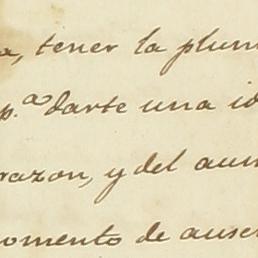 a, tener la plum
p.ª darte una id
razon, y del aum
omento de ausen